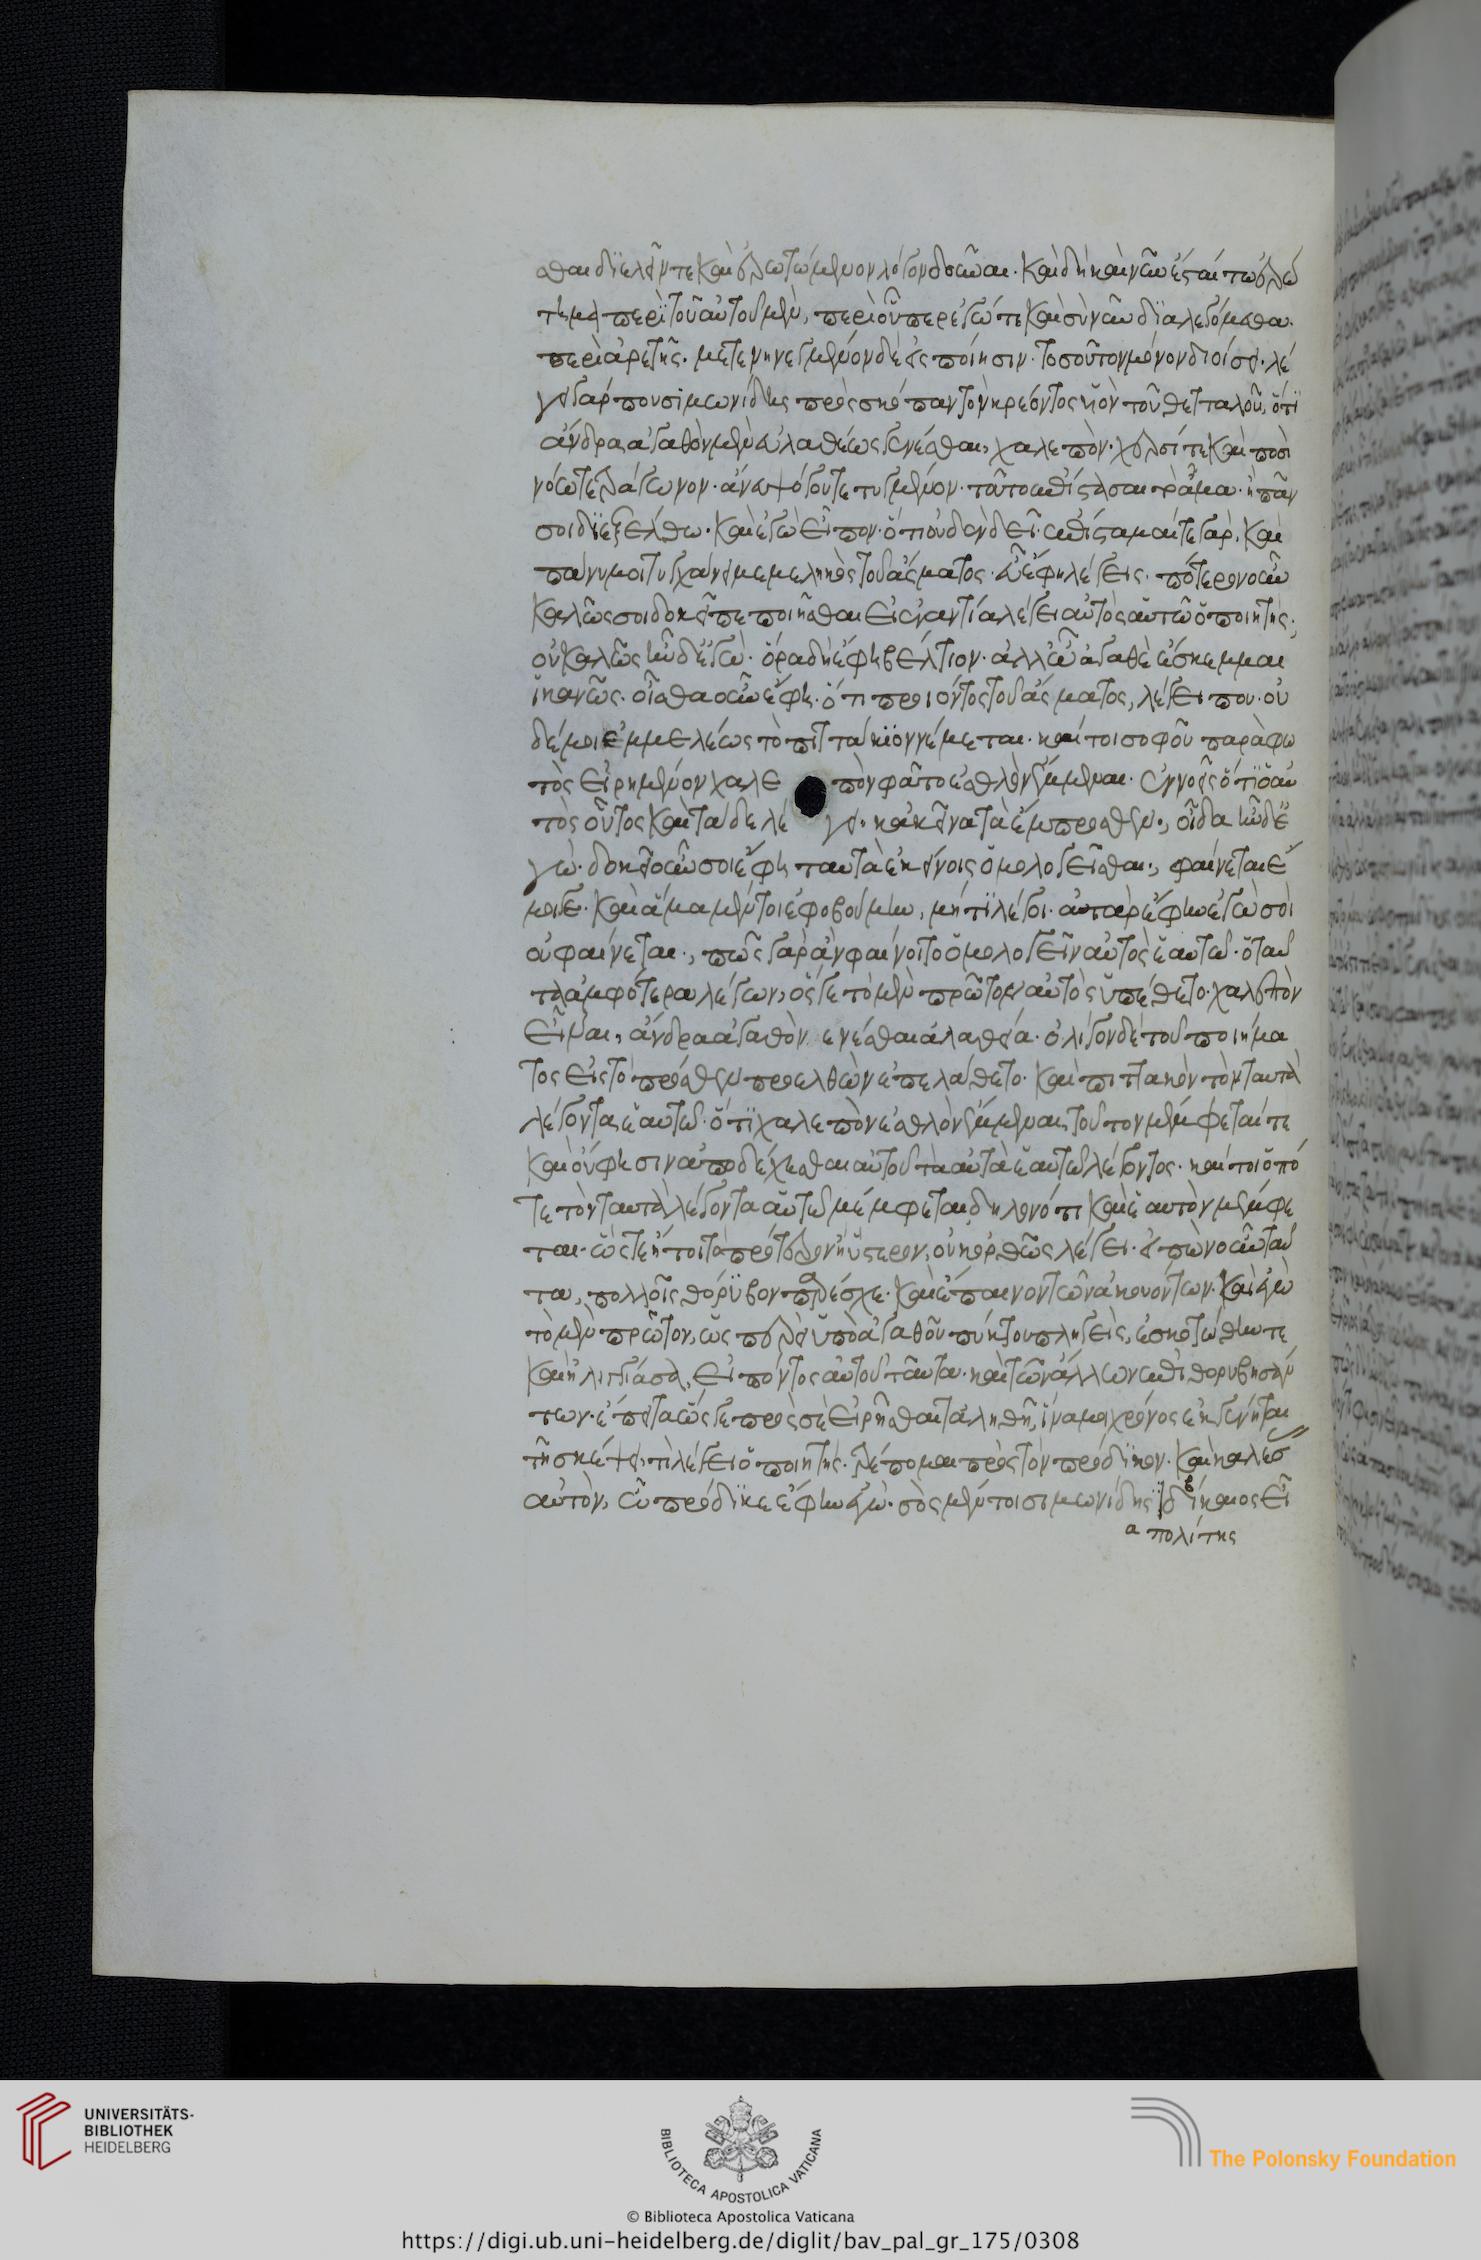 σθαι διελεῖν τε καὶ ἐρωτώμενον λόγον δοῦναι. καὶ δὴ καὶ νῦν ἔσται τὸ ἐρώ
τημα περὶ τοῦ αὐτοῦ μὲν, περὶ οὗπερ ἐγώ τε καὶ σὺ νῦν διαλεγόμεθα.
περὶ ἀρετῆς. μετενηνεγμένον δὲ εἰς ποίησιν. τοσοῦτον μόνον διοίσει. λέ
γει γάρ που σιμωνίδης πρὸς σκόπαν τὸν κρέοντος υἱὸν τοῦ θετταλοῦ, ὅτι
ἄνδρα ἀγαθὸν μὲν ἀλαθέως γενέσθαι, χαλεπὸν. χερσί τε καὶ ποσὶ
νόω τετράγωνον. ἄνευ ψόγου τετυγμένον. τοῦτο ἐπίστασαι τὸ ἆσμα. ἢ πᾶν
σοι διεξέλθω. καὶ ἐγὼ εἶπον. ὅτι οὐδὲν δεῖ. ἐπίσταμαί τε γάρ. καὶ
πάνυ μοι τυγχάνει μεμεληκὸς τοῦ ἄσματος. εὖ ἔφη λέγεις. πότερον οὖν
καλῶς σοι δοκεῖ πεποιῆσθαι εἰ ἐναντία λέγει αὐτὸς αὑτῶ ὁ ποιητής;
οὐ καλῶς ἦν δ' ἐγώ. ὅρα δὴ ἔφη βέλτιον. ἀλλ' ὦ ἀγαθὲ ἔσκεμμαι
ἱκανῶς. οἶσθα οὖν ἔφη. ὅτι προιόντος τοῦ ἄσματος, λέγει που. οὐ
δέ μοι ἐμμελέως τὸ πιττάκιον νέμεται. καίτοι σοφοῦ παρὰ φω
τὸς εἰρημένον χαλεπὸν φάτο ἐσθλὸν ἔμμεναι. ἐννοεῖς ὅτι ὁ αὐ
τὸς οὗτος καὶ τάδε λέγει. κἀκεῖνα τὰ ἔμπροσθεν., οἶδα ἦν δ' ἐ
γώ. δοκεῖ οὖν σοι ἔφη ταυτὰ ἐκείνοις ὁμολογεῖσθαι., φαίνεται ἔ
μοιγε. καὶ ἅμα μέντοι ἐφοβούμην, μή τι λέγοι. ἀτὰρ ἔφην ἐγὼ σοὶ
οὐ φαίνεται., πῶς γὰρ ἂν φαίνοιτο ὁμολογεῖν αὐτὸς ἑαυτῶ. ὁ ταῦ
τα ἀμφότερα λέγων, ὅς γε τὸ μὲν πρῶτον αὐτὸς ὑπέθετο. χαλεπὸν
εἶναι, ἄνδρα ἀγαθὸν γενέσθαι ἀλαθεία. ὀλίγον δὲ τοῦ ποιήμα
τος εἰς τὸ πρόσθεν προελθὼν ἐπελάθετο. καὶ πιττακὸν τὸν ταυτὰ
λέγοντα ἑαυτῶ. ὅτι χαλεπὸν ἐσθλὸν ἔμμεναι, τοῦτον μέμφεταί τε
καὶ οὔ φησιν ἀποδέχεσθαι αὐτοῦ τὰ αὐτὰ ἑαυτῶ λέγοντος. καίτοι ὁπό
τε τὸν ταυτὰ λέγοντα αὑτῶ μέμφεται, δηλονότι καὶ ἑαυτὸν μέμφε
ται. ὥστε ἤτοι τὸ πρότερον ἢ ὕστερον, οὐκ ὀρθῶς λέγει. εἰπὼν οὖν ταῦ
τα, πολλοῖς θόρυβον παρέσχε. καὶ ἔπαινον τῶν ἀκουόντων. καὶ ἐγὼ
τὸ μὲν πρῶτον, ὡς περεὶ ὑπὸ ἀγαθοῦ πύκτου πληγεὶς, ἐσκοτώθην τε
καὶ ἰλιγγίασα, εἰπόντος αὐτοῦ ταῦτα. καὶ τῶν ἄλλων ἐπιθορυβησάν
των. ἔπειτα ὥς γε πρὸς σὲ εἰρῆσθαι τἀληθῆ, ἵνα μοι χρόνος ἐγγένηται
τῆ σκέψει, τί λέγει ὁ ποιητής. τρέπομαι πρὸς τὸν πρόδικον. καὶ καλέσ
αὐτὸν, ὦ πρόδικε ἔφην ἐγώ. σὸς μέντοι σιμωνίδης δίκαιος εἶ
πολίτης
UNIVERSITÄTS-
BIBLIOTHEK
HEIDELBERG
BIBLIOTECA APOSTOLICA VATICANA
The Polonsky Foundation
© Biblioteca Apostolica Vaticana
https://digi.ub.uni-heidelberg.de/diglit/bav_pal_gr_175/0308